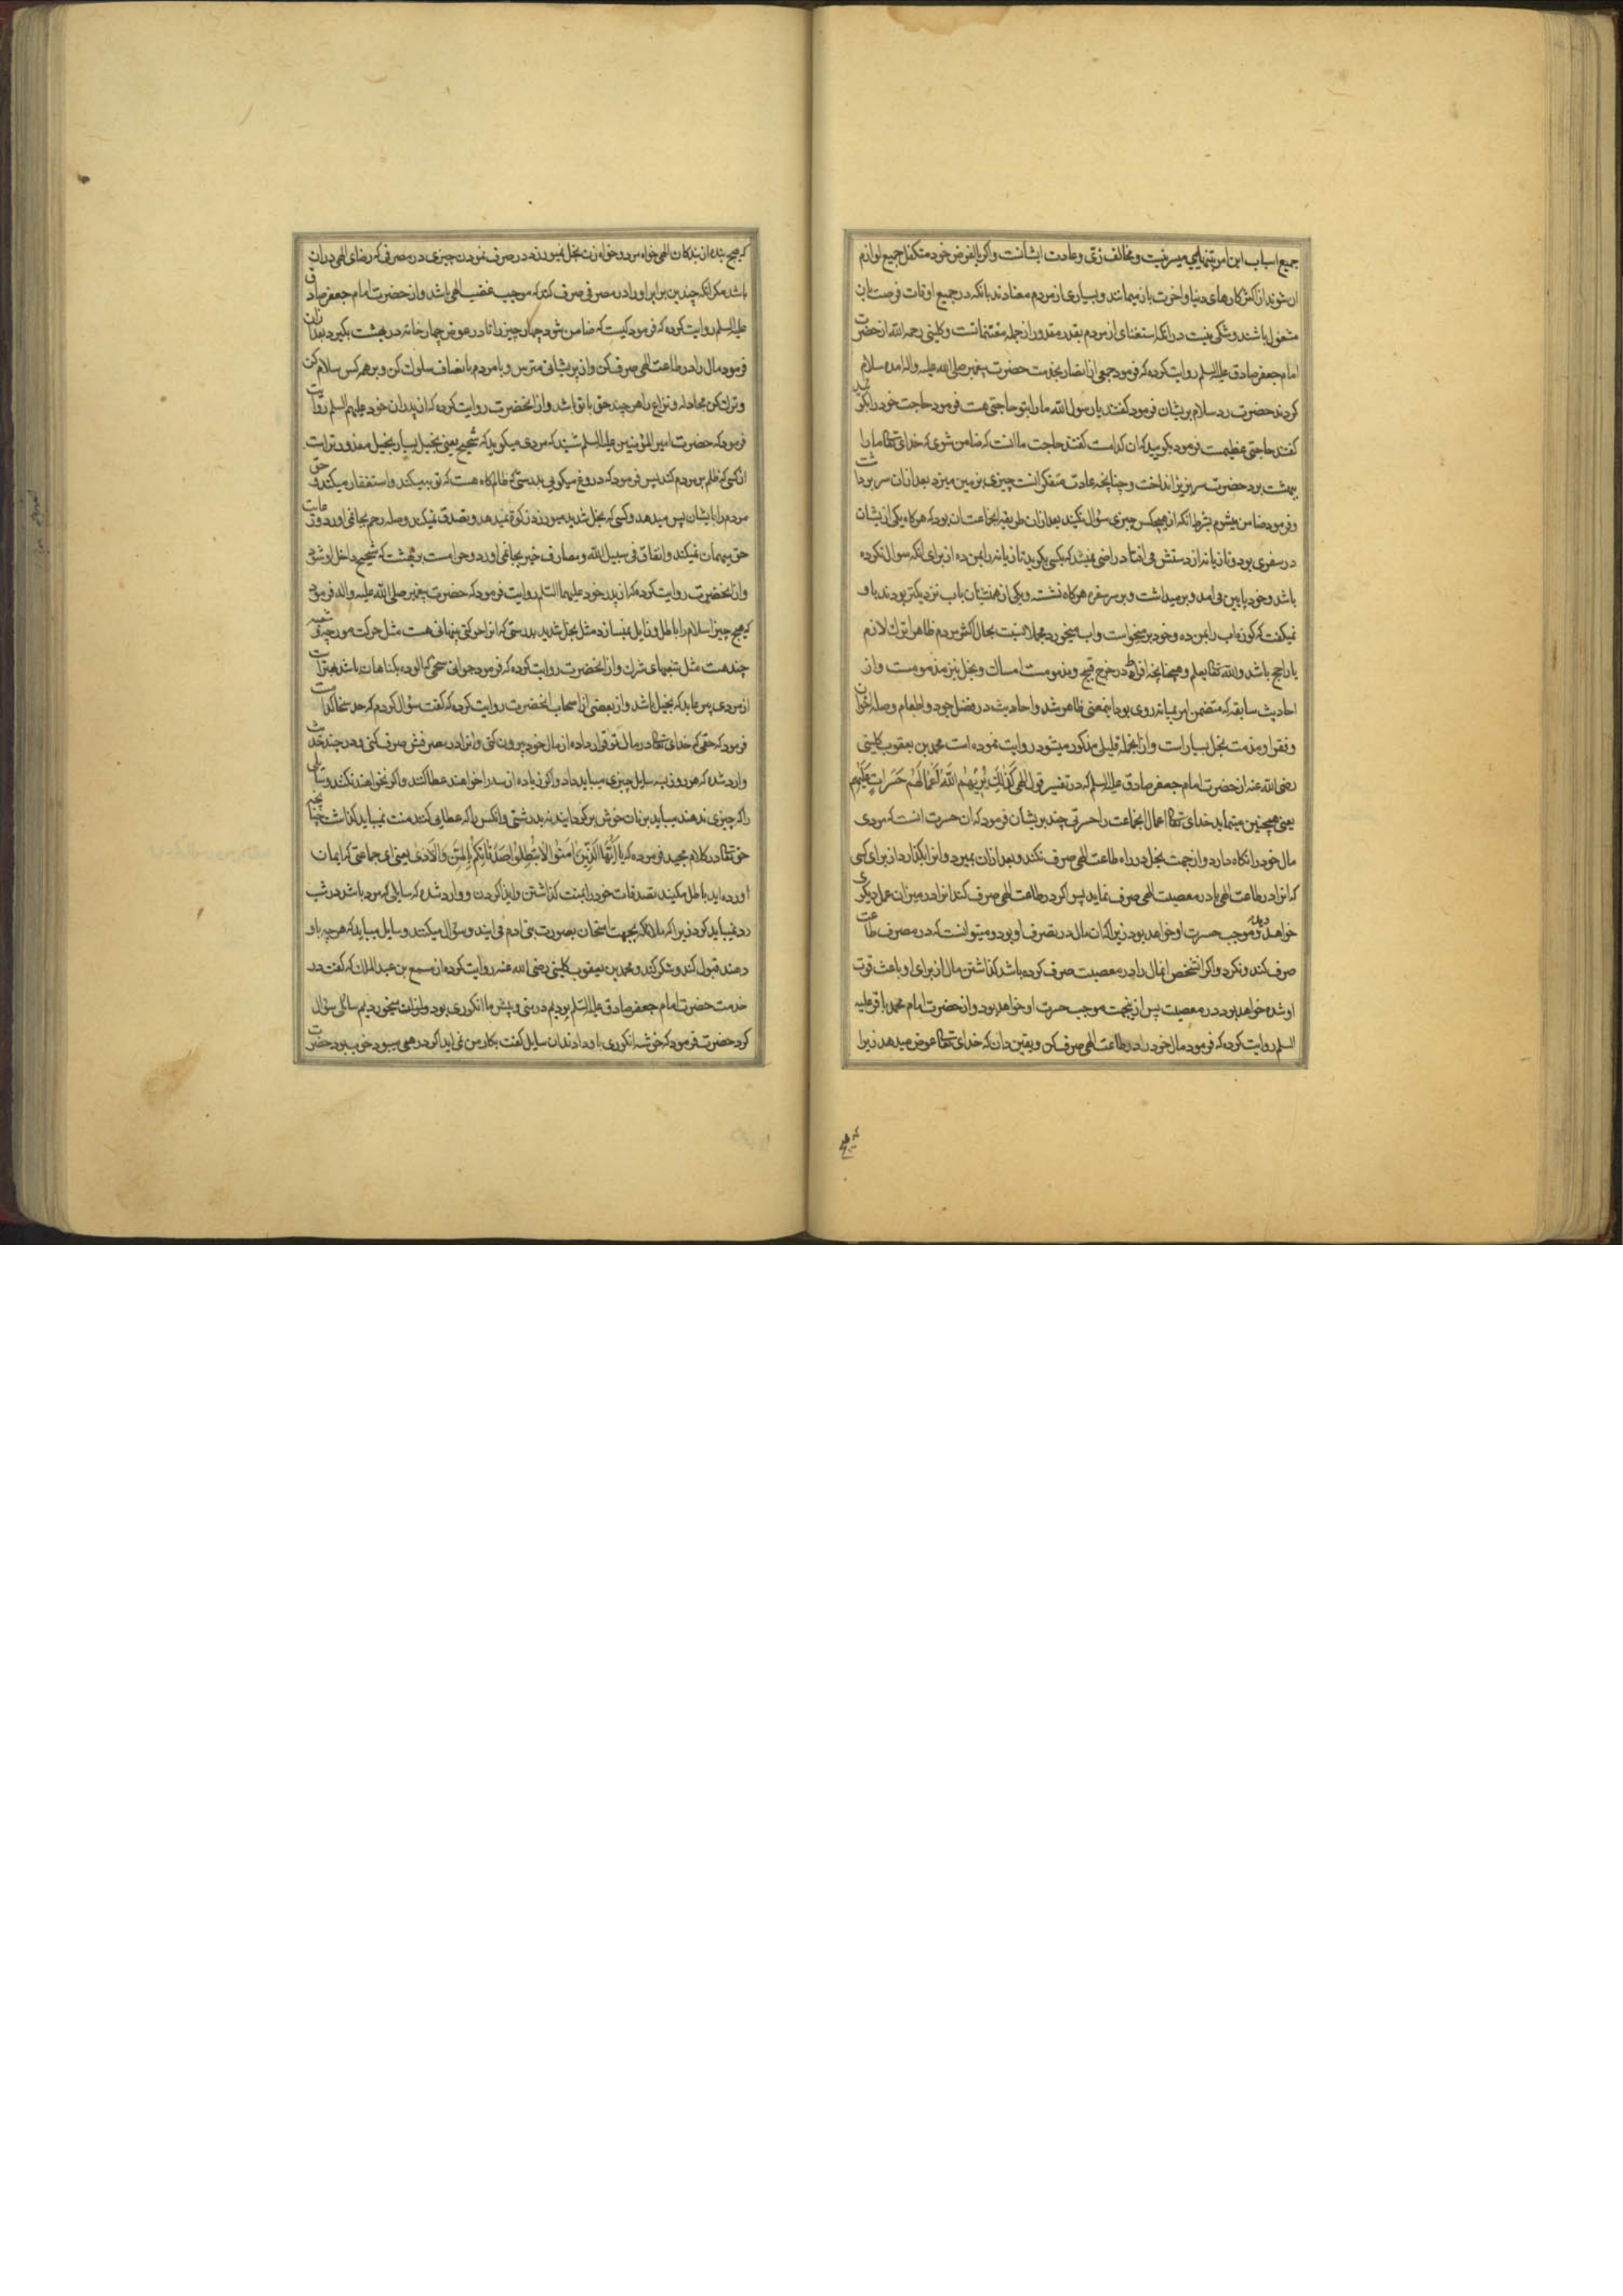 جمیع اسباب این امر بتنهایی میسر نیست و مخالف زی و عادت ایشانست و اکر بالفرض خود متکفل جمیع لوازم
ان شوند از اکثر کارهای دنیا و اخرت باز میمانند و بسیاری از مردم معتادند بانکه در جمیع اوقات فرصت بان
مشغول باشند و شکی نیست در انکه استغنای از مردم بقدر مقدور از جمله مغتنماتست و کلینی رحمه الله از حضرت
امام جعفر صادق علیه السلم روایت کرده که فرمود جمعی از انصار بخدمت حضرت پیغمبر صلی الله علیه واله امده سلام
کردند حضرت رد سلام بریشان فرمود کفتند یا رسول الله ما را بتو حاجتی هست فرمود حاجت خود را بکویید
کفتند حاجتی عظیمست فرمود بکویید که ان کدامست کفتند حاجت ما انست که ضامن شوی که خدای تعالی ما را
ببهشت برد حضرت سر بزیر انداخت و چنانچه عادت متفکرانست چیزی بر زمین میزد بعد از ان سر برداشت
و فرمود ضامن میشوم بشرط انکه از هیچکس چیزی سؤال نکنید بعد از ان طریقه انجماعت ان بود که هرکاه یکی از یشان
در سفری بود و تازیانه از دستش می افتاد راضی نمیشد که بکسی بکوید تازیانه را بمن ده از برای انکه سوال نکرده
باشد و خود پایین می امد و بر میداشت و بر سر سفره هرکاه نشسته و یکی از همنشینان باب نزدیکتر بودند باو
نمیکفت که کوزه اب را بمن ده و خود بر میخواست و اب میخورد مجملا نسبت بحال اکثر مردم ظاهرا ترک لازم
یا راجح باشد والله تعالی یعلم و همچنانچه افراط در خرج قبیح و مذمومست امساک و بخل نیز مذمومست و از
احادیث سابقه که متضمن امر بمیانه روی بود اینمعنی ظاهر شد و احادیث در فضل جود و اطعام و صله اخوان
و فقرا و مذمت بخل بسیارست و از انجمله قلیلی مذکور میشود روایت نموده است محمد بن یعقوب کلینی
رضی الله عنه از حضرت امام جعفر صادق علیه السلم که در تفسیر قول الهی كَذٰلِكَ يُرِيهُمُ اللّٰهُ أَعْمَالَهُمْ حَسَرَاتٍ عَلَيْهِمْ
یعنی همچنین مینماید خدای تعالی اعمال انجماعت را حسرتی چند بریشان فرمود که ان حسرت انست که مردی
مال خود را نکاه دارد و از جهت بخل در راه طاعت الهی صرف نکند و بعد از ان بمیرد و انرا بکذارد از برای کسی
که انرا در طاعت الهی یا در معصیت الهی صرف نماید پس اکر در طاعت الهی صرف کند انرا در میزان عمل دیکری
خواهد دید و موجب حسرت او خواهد بود زیرا که ان مال در تصرف او بود و میتوانست که در مصرف طاعت
صرف کند و نکرد و اکر انشخص انمال را در معصیت صرف کرده باشد کذاشتن مال از برای او باعث قوت
او شده خواهد بود در معصیت پس از ینجهت موجب حسرت او خواهد بود و از حضرت امام محمد باقر علیه
السلم روایت کرده که فرمود مال خود را در طاعت الهی صرف کن و یقین دان که خدای تعالی عوض میدهد زیرا
که هیچ
که هیچ بنده از بندکان الهی خواه مرد و خواه زن بخل نمیورزد در صرف نمودن چیزی در مصرفی که رضای الهی در ان
باشد مکر انکه چندین برابر او را در مصرفی صرف کند که موجب غضب الهی باشد و از حضرت امام جعفر صادق
علیه السلم روایت کرده که فرمود کیست که ضامن شود چهار چیز را تا در عوض چهار خانه در بهشت بکیرد بعد از ان
فرمود مال را در طاعت الهی صرف کن و از پریشانی مترس و با مردم بانصاف سلوک کن و بر همه کس سلام کن
و ترک کن مجادله و نزاع را هر چند حق با تو باشد و از انحضرت روایت کرده که از پدران خود علیهم السلم روایت
فرمود که حضرت امیر المؤمنین علیه السلم شنید که مردی میکوید که شحیح یعنی بخیل بسیار بخیل معذورترست
از کسی که ظلم بر مردم کند پس فرمود که دروغ میکویی بدرستی که ظالم کاه هست که توبه میکند و استغفار میکند و حق
مردم را بایشان پس میدهد و کسی که بخل شدید میورزد زکوة نمیدهد و تصدق نمیکند و صله رحم بجا نمی اورد و رعایت
حق میهمان نمیکند و انفاق فی سبیل الله و مصارف خیر بجا نمی اورد و حرامست بر بهشت که شحیح داخل او شود
و از انحضرت روایت کرده که از پدر خود علیهما السلم روایت فرمود که حضرت پیغمبر صلی الله علیه واله فرمود
که هیچ چیز اسلام را باطل و زایل نمیسازد مثل بخل شدید بدرستی که انرا حرکتی پنهانی هست مثل حرکت مورچه و شعبه
چند هست مثل شعبهای شرک و از انحضرت روایت کرده که فرمود جوانی سخی که الوده بکناهان باشد بهترست
از مردی پیر عابد که بخیل باشد و از بعضی از اصحاب انحضرت روایت کرده که کفت سؤال کردم که حد سخا کدامست
فرمود که حقی که خدای تعالی در مال تو قرار داده از مال خود بیرون کنی و انرا در مصرفش صرف کنی و در چند حدیث
وارد شده که هر روز بسه سایل چیزی میباید داد و اکر زیاده از سه را خواهند عطا کنند و اکر نخواهند نکنند و سایلی
را که چیزی ندهند میباید بزبان خوش بر کردانند نه بدرشتی و انکس را که عطایی کنند منت نمیباید کذاشت چنانچه
حق تعالی در کلام مجید فرموده که يٰا أَيُّهَا الَّذِينَ اٰمَنُوا لاٰ تُبْطِلُوا صَدَقٰاتِكُمْ بِالْمَنِّ وَالْأَذىٰ یعنی ای جماعتی که ایمان
اورده اید باطل مکنید تصدقات خود را بمنت کذاشتن و ایذا کردن و وارد شده که سایلی که مرد باشد در شب
رد نمیباید کرد زیرا که ملائکه بجهت امتحان بصورت بنی ادم می ایند و سؤال میکنند و سایل میباید که هرچه باو
دهند قبول کند و شکر کند و محمد بن یعقوب کلینی رضی الله عنه روایت کرده از مسمع بن عبد الملک که کفت در
خدمت حضرت امام جعفر صادق علیه السلم بودیم در منی و پیش ما انکوری بود و از ان میخوردیم سائلی سؤال
کرد حضرت فرمود که خوشه انکوری باو دادند ان سایل کفت بکار من نمی اید اکر درهمی میبود خوب بود حضرت